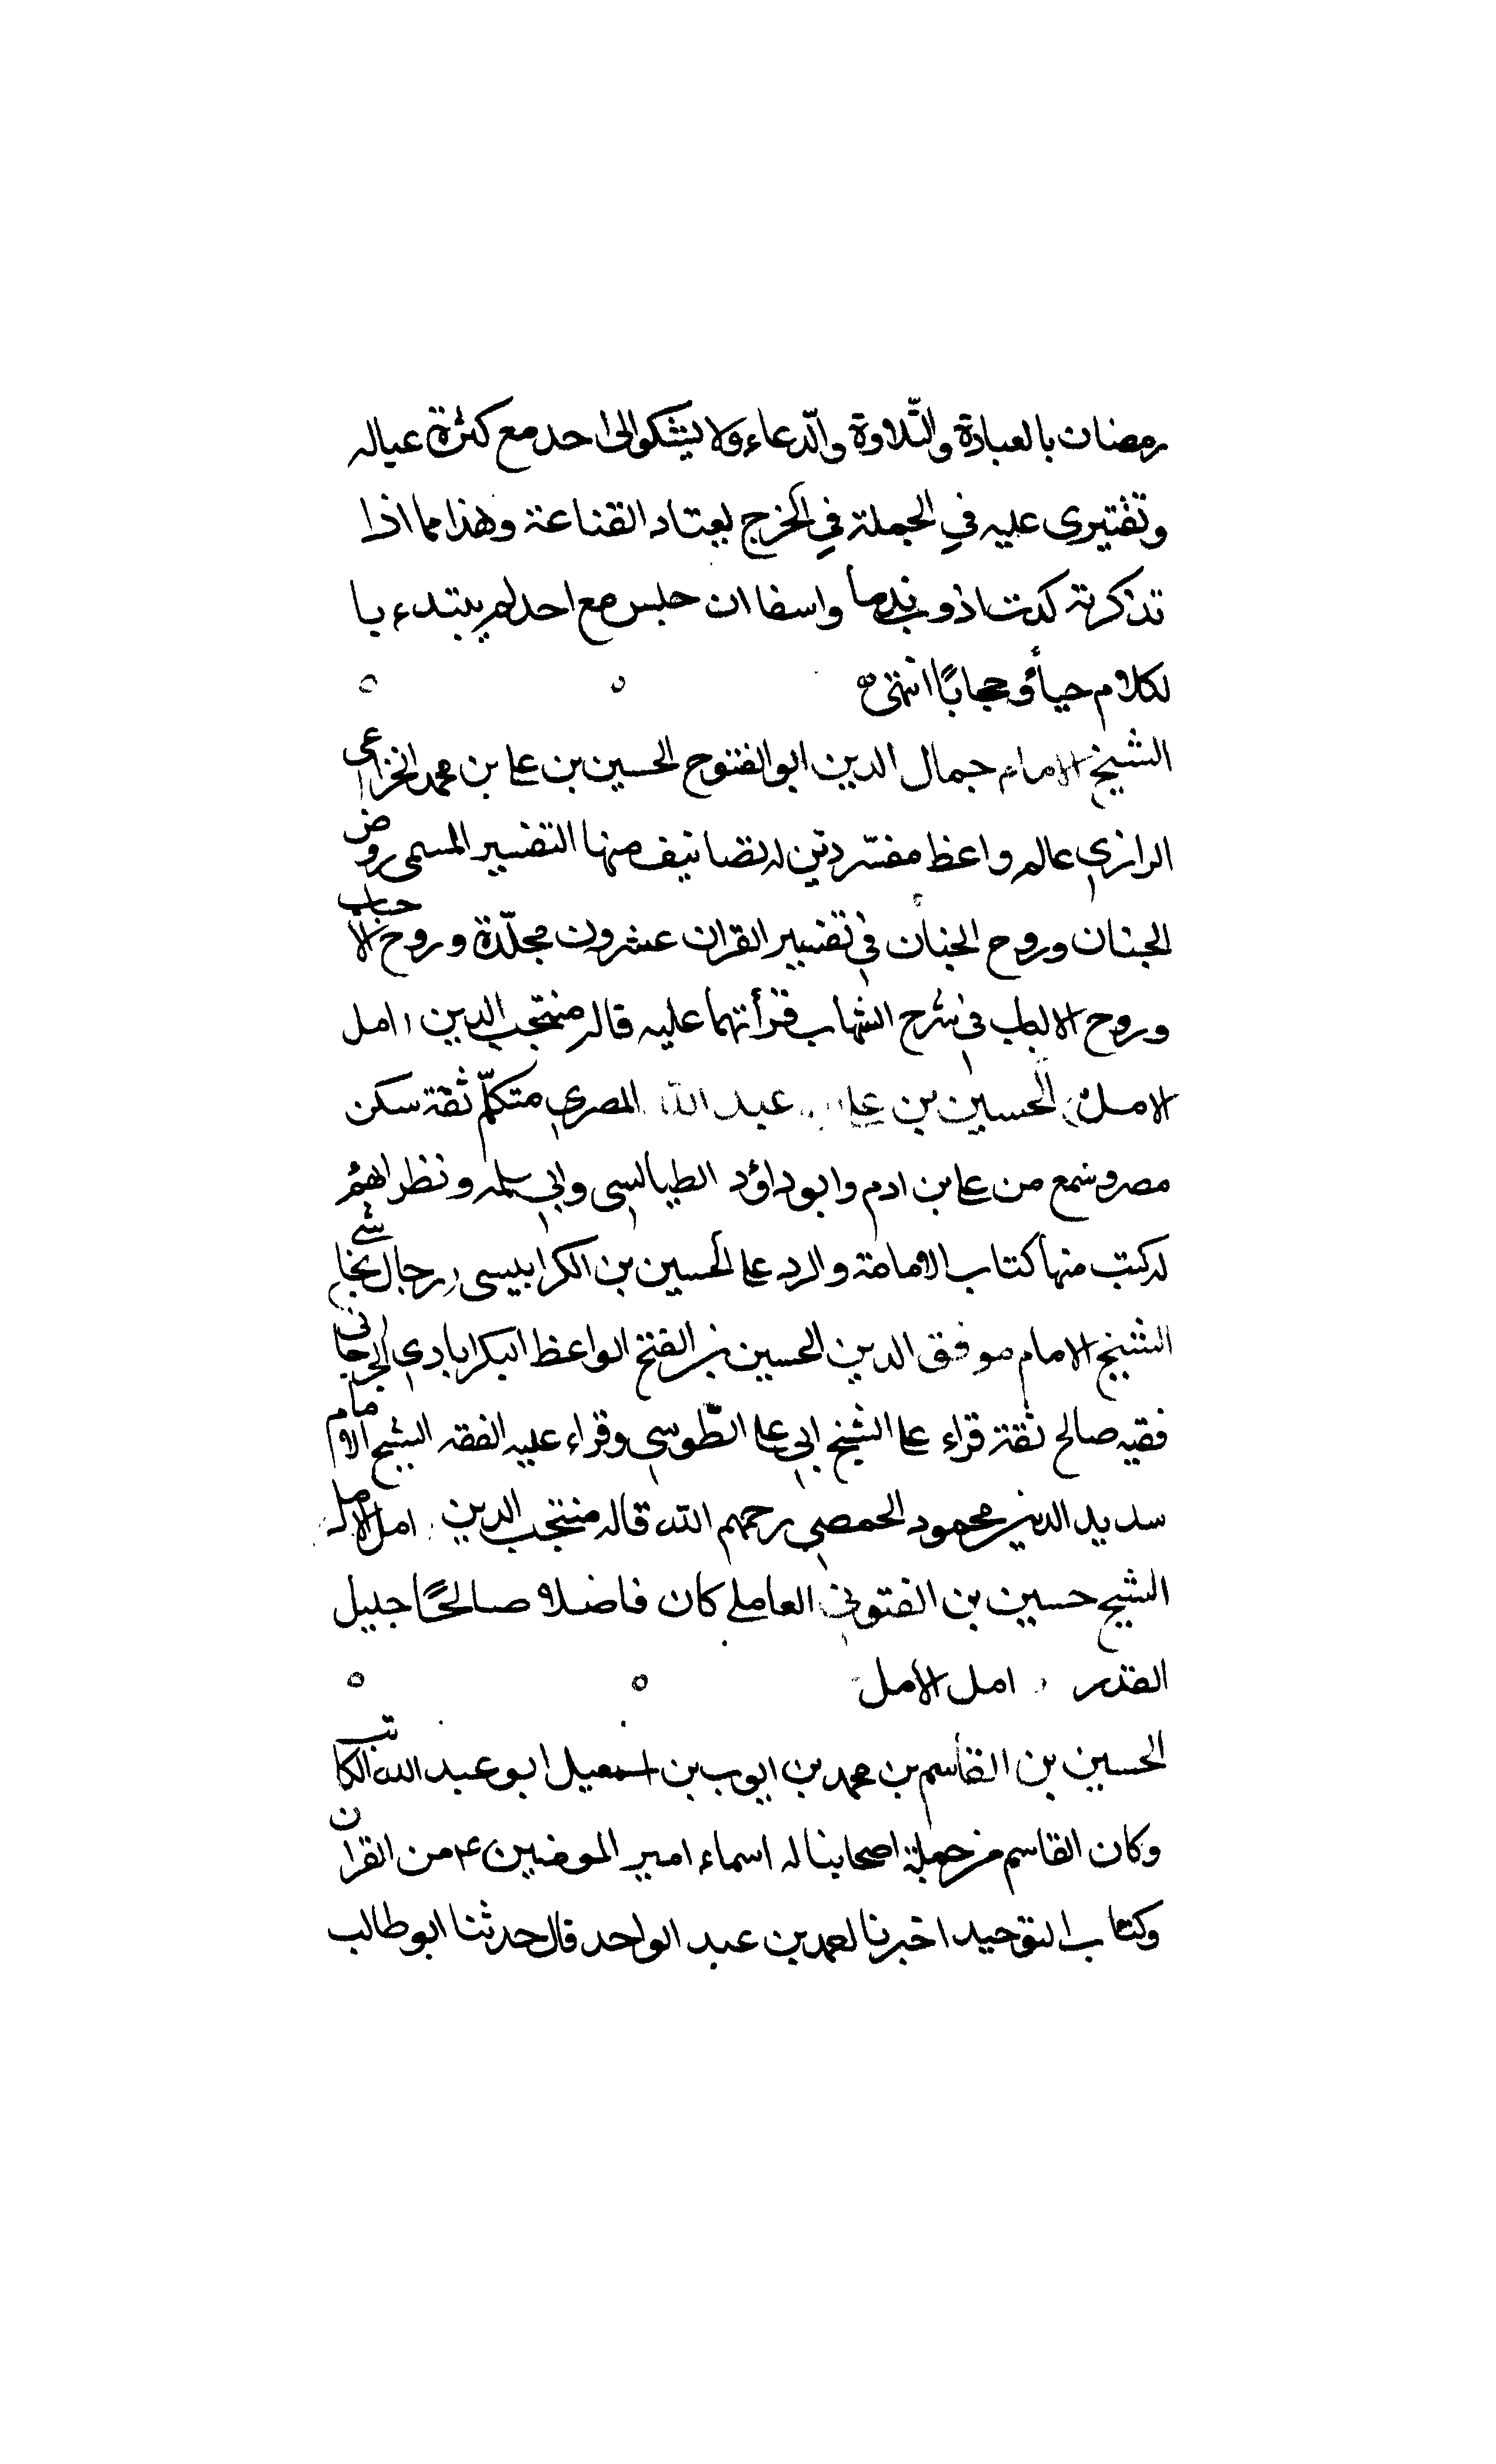 رمضان بالعبادة والتّلاوة والدّعاء ولا يشكو الى احد مع كثرة عياله
وتقتيرى عليه في الجملة في الخرج يعتاد القناعة وهذا مما اذا
تذكرته كدت اذوب ندما واسفا ان جلس مع احد لم يبتدء با
لكلام حياءً وحجابًا انتهى
الشيخ الامام جمال الدين ابو الفتوح الحسين بن علي بن محمد الخزاعى
الرازي عالم واعظ مفسّر دين له تصانيف منها التفسير المسمى روض
الجنان وروح الجنان في تفسير القران عشرون مجلّدة وروح الاحباب
وروح الالباب في شرح الشهاب قرأتهما عليه قاله منتجب الدين امل
الامل الحسين بن علي عبد الله المصري متكلّم ثقة سكن
مصر وسمع من علي بن ادم وابو داؤد الطيالسى وابي سلمه ونظرائهم
له كتب منها كتاب الامامة والرد على الحسين بن الكرابيسى رجال نجاشي
الشيخ الامام موفق الدين الحسين بن الفتح الواعظ البكرابادي الجرجانى
فقيه صالح ثقة قراء على الشيخ ابي علي الطّوسي وقراء عليه الفقه الشيخ الامام
سديد الدين محمود الحمصي رحمهم الله قاله منتجب الدين امل الامل
الشيخ حسين بن الفتوني العاملي كان فاضلا صالحًا جليل
القدر امل الامل
الحسين بن القاسم بن محمد بن ايوب بن اسمعيل ابو عبد الله الكاتب
وكان القاسم من جملة اصحابنا له اسماء امير المومنين ع من القران
وكتاب التوحيد اخبرنا احمد بن عبد الواحد قال حدثنا ابو طالب